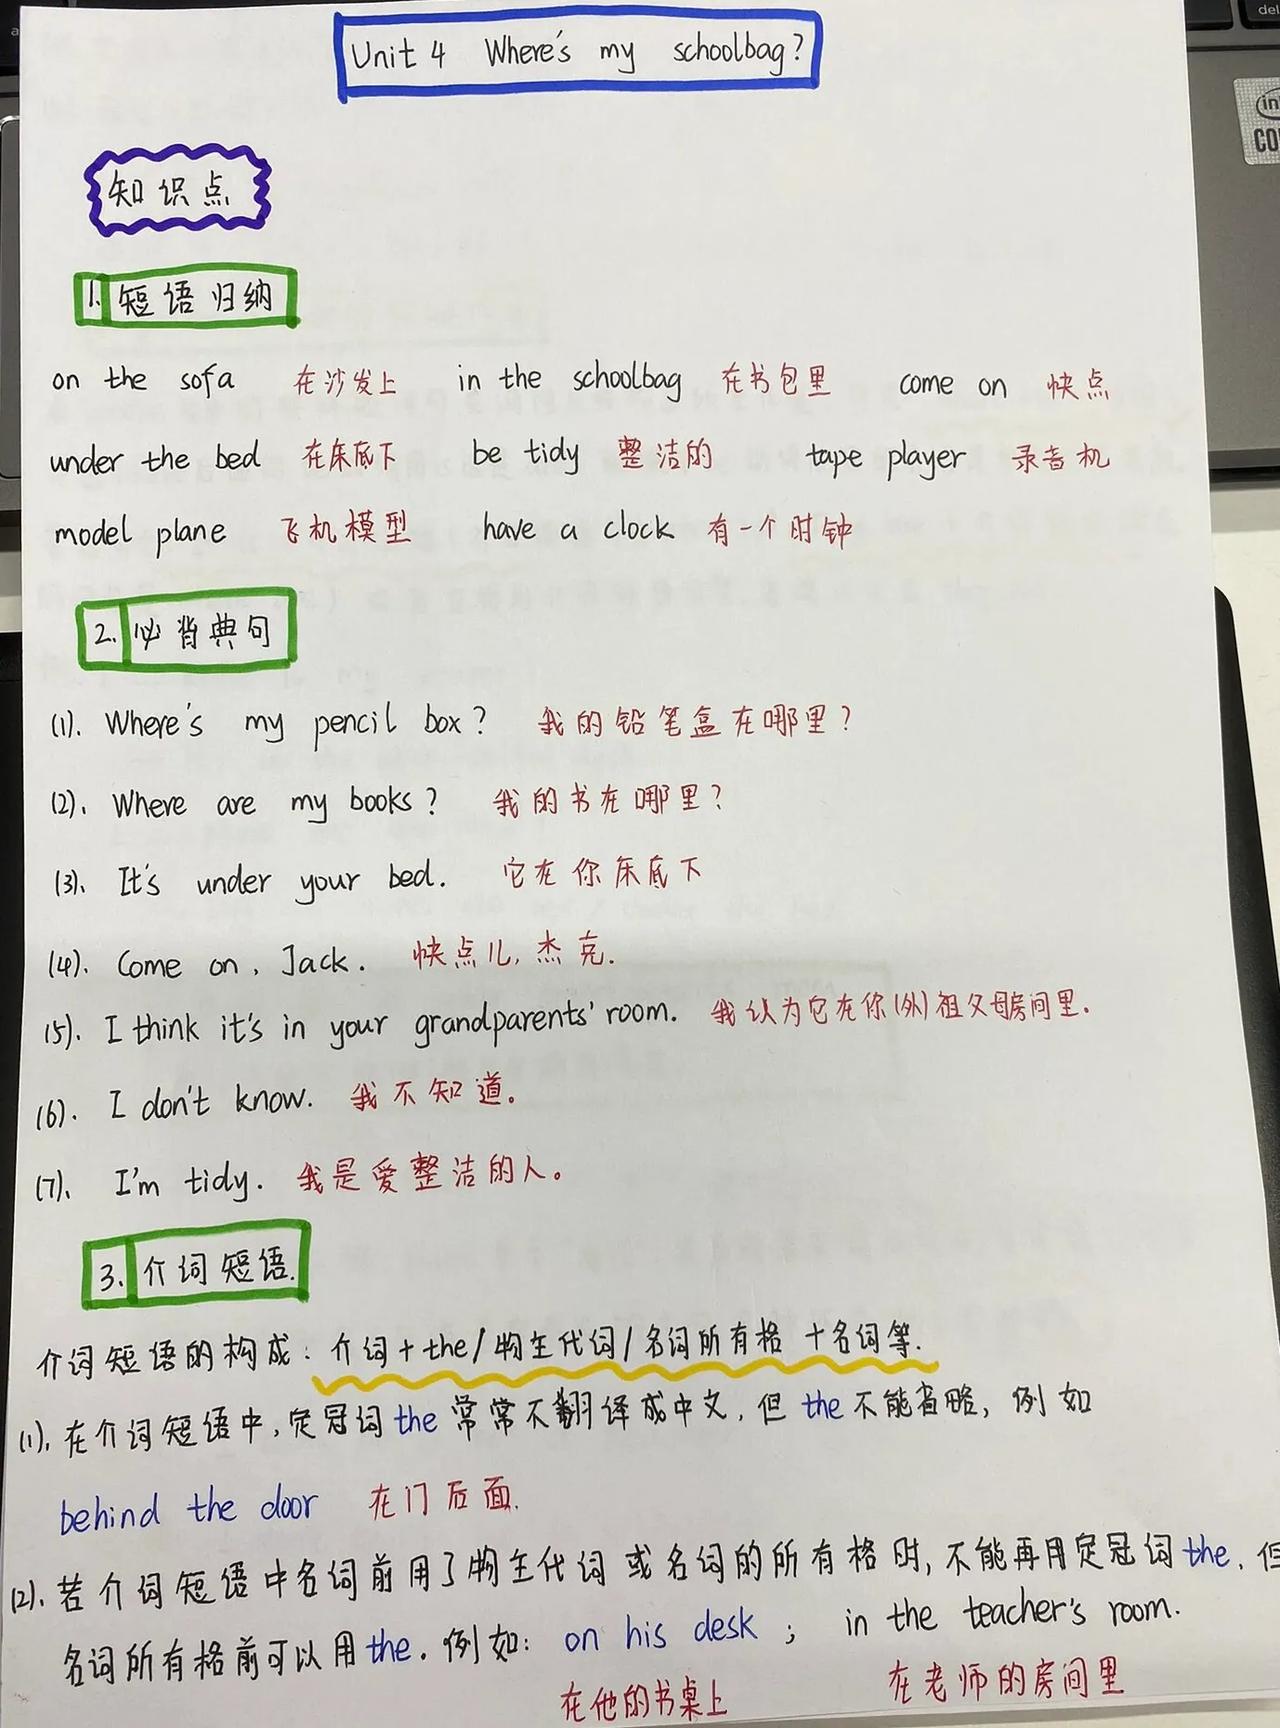 Unit 4 Where's my schoolbag?
知识点
1. 短语归纳
on the sofa 在沙发上 in the schoolbag 在书包里 come on 快点
under the bed 在床底下 be tidy 整洁的 tape player 录音机
model plane 飞机模型 have a clock 有一个时钟
2. 必背典句
(1). Where's my pencil box? 我的铅笔盒在哪里?
(2). Where are my books? 我的书在哪里?
(3). It's under your bed. 它在你床底下
(4). Come on, Jack. 快点儿,杰克.
(5). I think it's in your grandparents' room. 我认为它在你(外)祖父母房间里.
(6). I don't know. 我不知道。
(7). I'm tidy. 我是爱整洁的人。
3. 介词短语.
介词短语的构成: 介词+the/物主代词/名词所有格 +名词等.
(1). 在介词短语中,定冠词the常常不翻译成中文,但the不能省略,例如
behind the door 在门后面.
(2). 若介词短语中名词前用了物主代词或名词的所有格时,不能再用定冠词the,但
名词所有格前可以用the.例如: on his desk ; in the teacher's room.
在他的书桌上 在老师的房间里
del